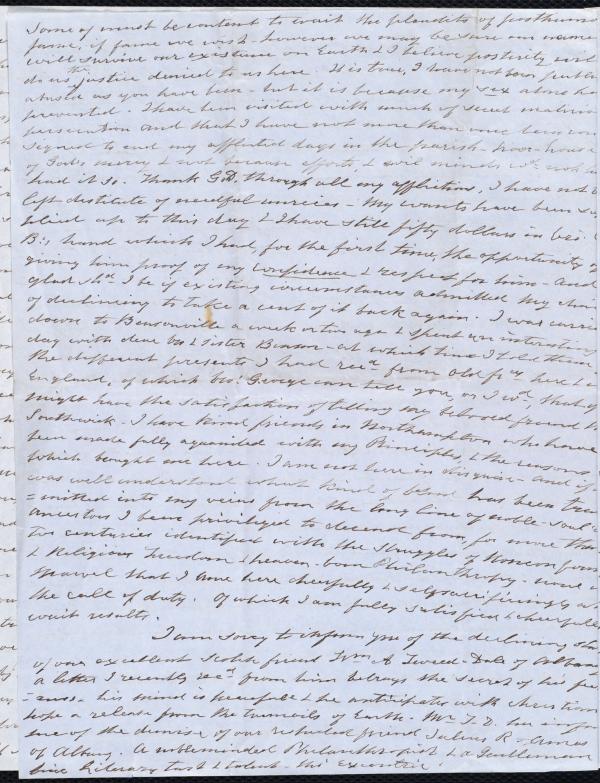 Some of must be content to wait the plaudits of posthum
fame, if fame we wish - however we may be sure our name
will survive our existence on Earth & I believe posterity will
do us the justice denied to us here. It is true, I have not been publi
abused as you have been - but it is because my sex alone ha
prevented. I have been visited with much of secret
persecution and that I have not more than once been con
signed to end my afflicted days in the parish poor-house
of God's mercy & not because efforts, & evil minds wd. not
had it so. Thank God. through all my afflictions, I have not b
left destitute of needful mercies - My wants have been su
plied up to this day & I have still fifty dollars in bro.
B's hand which I had, for the first time, the opportunity
giving him proof of my confidence & respect for him - and
glad shd. I be if existing circumstances admitted my
of declining to take a cent of it back again. I was carri
down to Bensonville a week or ten ago & spent an interesting
day with dear bro & sister Benson - at which time I told them
the different presents I had recd. from old fds here &
England, of which bro. George can tell you, or I wd. that
might have the satisfaction of telling my beloved friend
Southwick - I have kind friends in Northampton who have
been made fully aquainted with my Principles, & the reasons
which bought me here. I am not here in disguise - and if
was well understood what kind of blood has been tran
=mitted into my veins from the long line of noble-soul'd
ancestors I been privileged to decend from, for more than
two centuries identified with the struggles of Nonconform
& Religious Freedom & heaven-born Philanthropy - none
marvel that I came here cheerfully & selfsacrificingly at
the call of duty. Of which I am fully satisfied & cheerfull
wait results.
I am sorry to inform you of the declining sta
of our excellent Scotch friend Wm A Tweed-Dale of Alban
a letter I recently recd from him betrays the secret of his
his mind is peaceful & he anticipates with christian
hope a release from the turmoils of Earth - Mr. T. D. has inform
me of the demise of our respected friend Julius R. Ames
of Albany. A nobleminded Philanthropist & a Gentleman
fine Literary tast & talent - tho' Excentric!